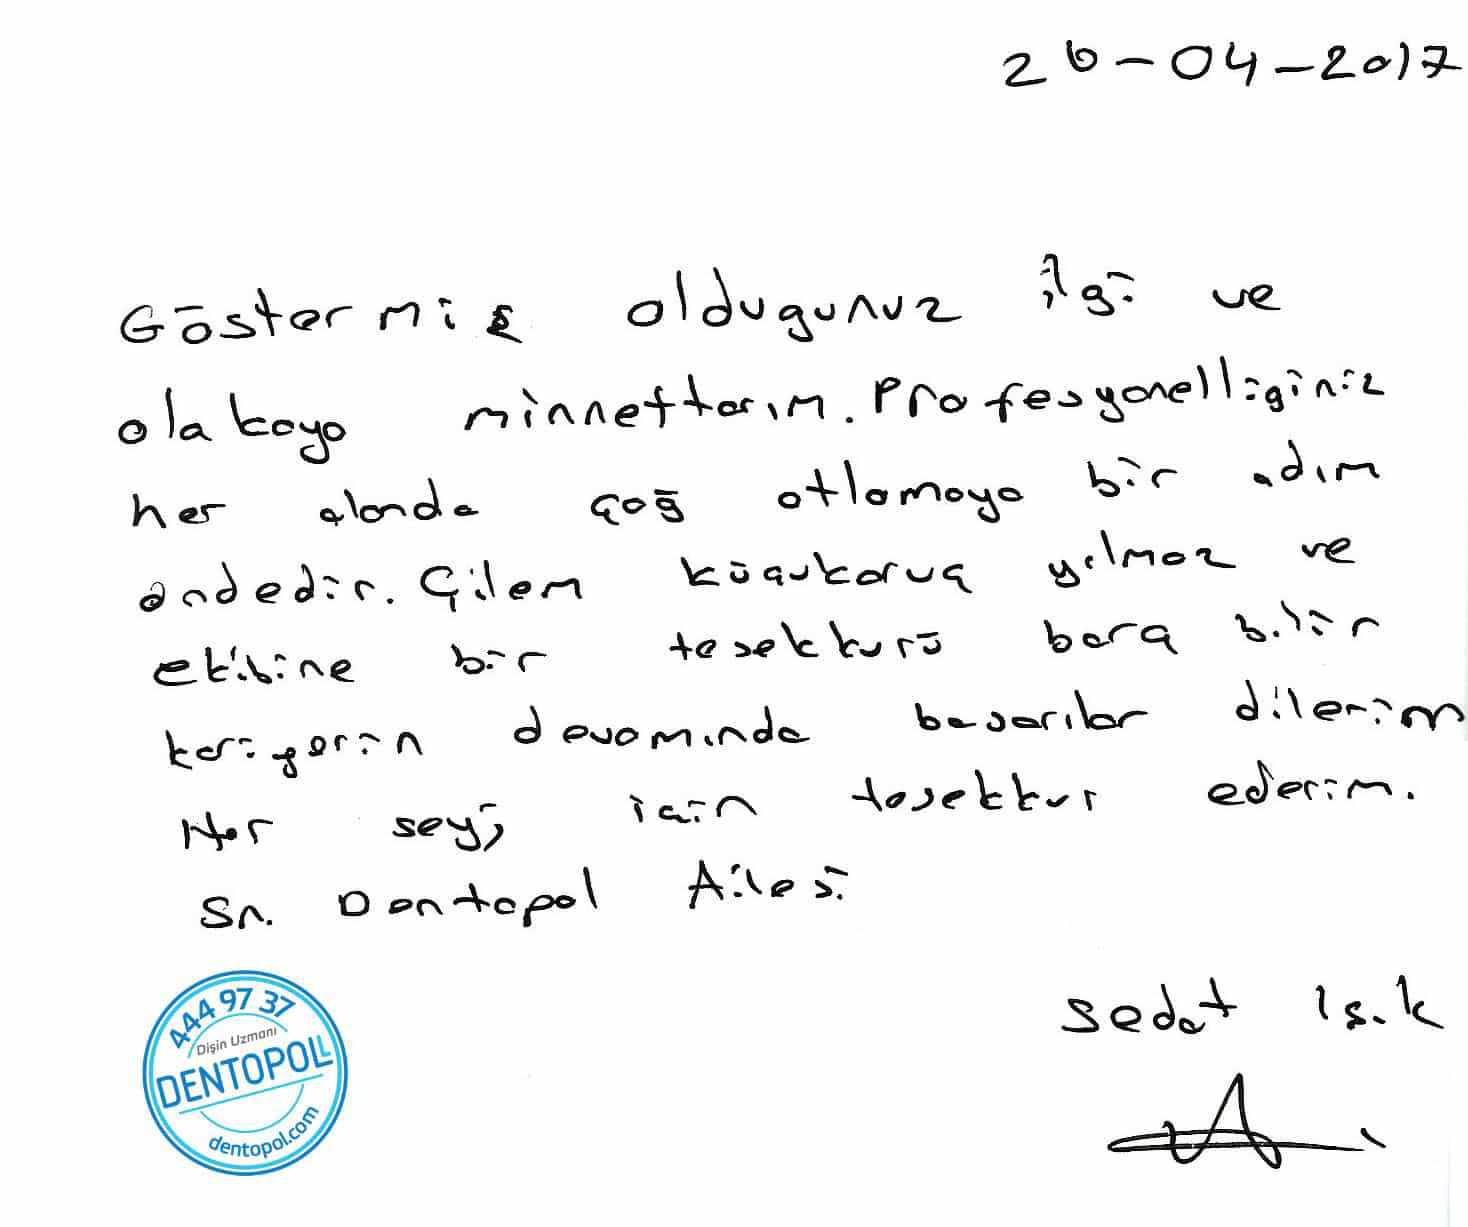 26-04-2017
Göstermiş oldugunuz ilgi ve
olakaya minnettarım. Profesyonelliginiz
her alanda çoğ atlamaya bir adım
andedir. Çilem küçukaruç yılmaz ve
ekibine bir tesekkurü borç bilir
kariyerin devamında basarılar dilerim
Her seyi için tesekkur ederim.
Sn. Dentapol Ailesi
Sedat Isık
444 97 37
Dişin Uzmanı
DENTOPOLL
dentopol.com